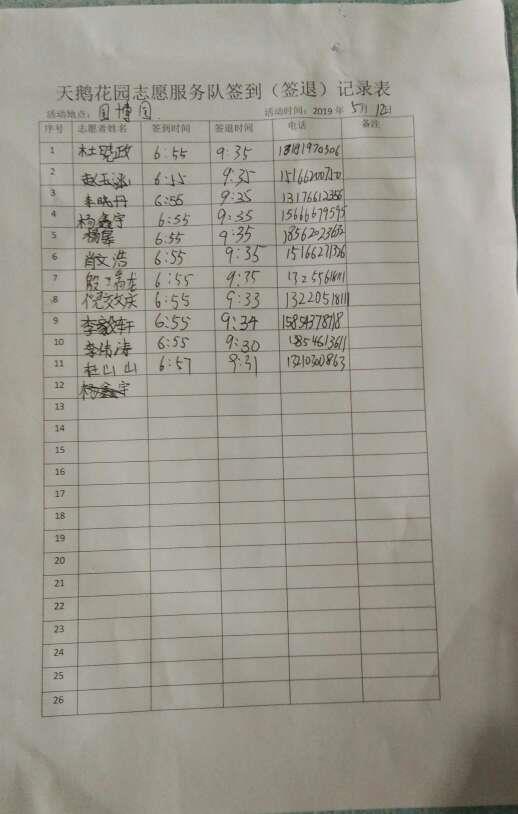 天鹅花园志愿服务队签到（签退）记录表
活动地点：园博园 活动时间：2019年5月12日
序号 志愿者姓名 签到时间 签退时间 电话 备注
1 杜晓政 6:55 9:35
2 赵玉冰 6:55 9:35
3 丹 6:55 9:35 13176612356
4 杨鑫宇 6:55 9:35 15666679595
5 杨 6:55 9:35
6 肖文浩 6:55 9:35
7 殷 6:55 9:35
8 倪 庆 6:55 9:33 13220518111
9 李毅轩 6:55 9:34 15854378718
10 李 涛 6:55 9:30 18546613611
11 杜山山 6:57 9:31 13210300863
12 杨鑫宇
13
14
15
16
17
18
19
20
21
22
23
24
25
26